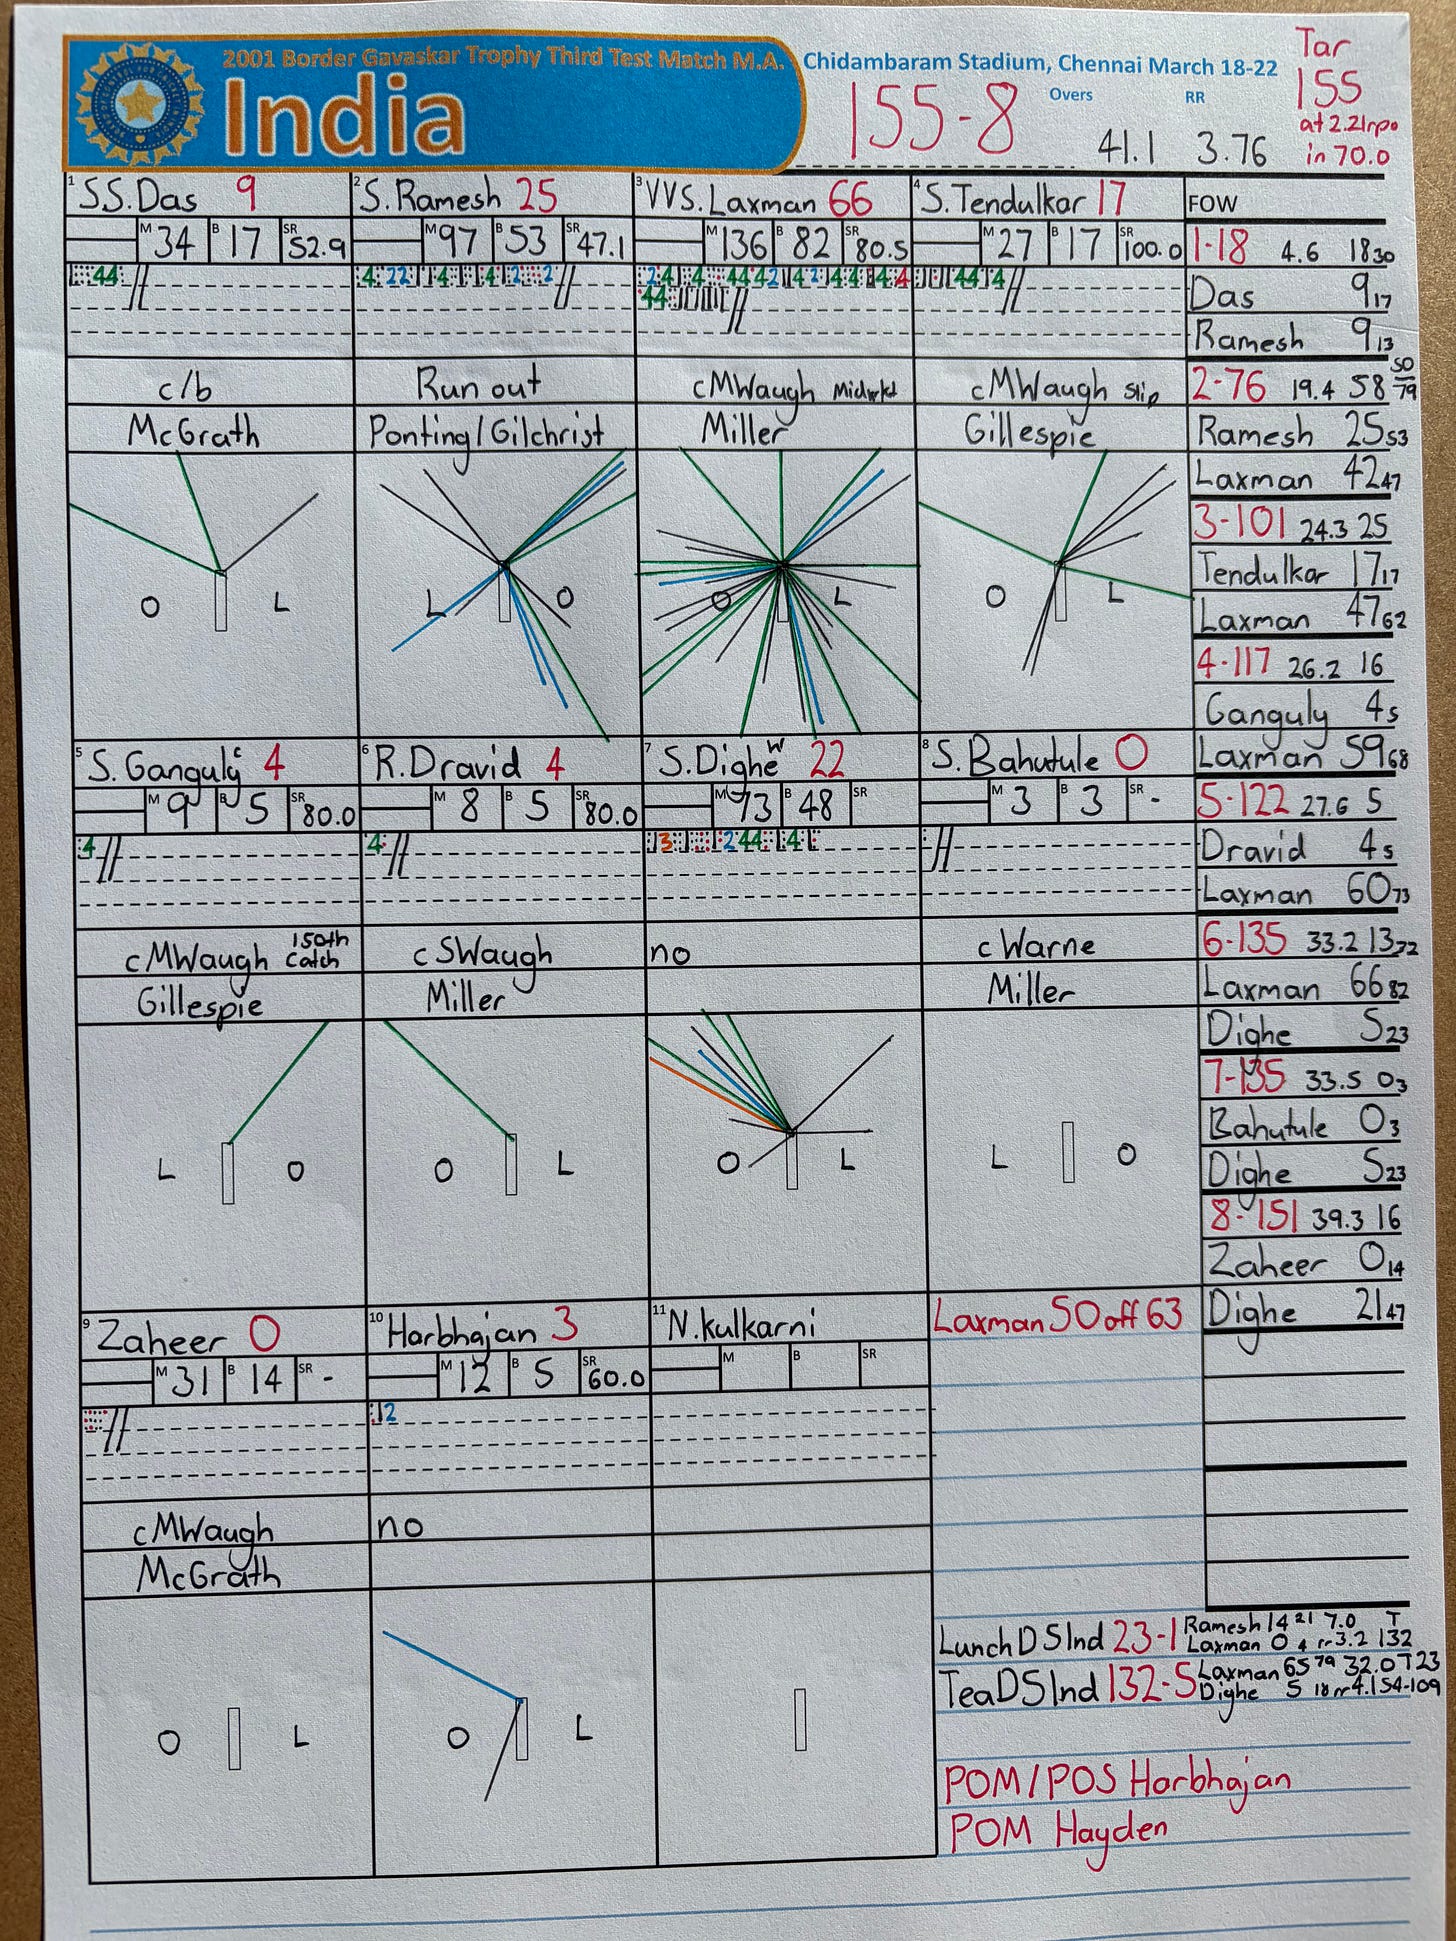 2001 Border Gavaskar Trophy Third Test Match M.A. Chidambaram Stadium, Chennai March 18-22
India
155-8
Overs 41.1
RR 3.76
Tar
155
at 2.21rpo
in 70.0
1 SS.Das 9
M 34 B 17 SR 52.9
44
c/b
McGrath
O L
2 S.Ramesh 25
M 97 B 53 SR 47.1
Run out
Ponting/Gilchrist
L O
3 VVS.Laxman 66
M 136 B 82 SR 80.5
cMWaugh Midwkt
Miller
O L
4 S.Tendulkar 17
M 27 B 17 SR 100.0
cMWaugh Slip
Gillespie
O L
FOW
1-18 4.6 18 30
Das 9 17
Ramesh 9 13
2-76 19.4 58 50/79
Ramesh 25 53
Laxman 42 47
3-101 24.3 25
Tendulkar 17 17
Laxman 47 62
4-117 26.2 16
Ganguly 4 5
Laxman 59 68
5-122 27.6 5
Dravid 4 5
Laxman 60 73
6-135 33.2 13 72
Laxman 66 82
Dighe 5 23
7-135 33.5 0 3
Bahutule 0 3
Dighe 5 23
8-151 39.3 16
Zaheer 0 14
Dighe 21 47
5 S.Ganguly c 4
M 9 B 5 SR 80.0
4
cMWaugh 150th Catch
Gillespie
L O
6 R.Dravid 4
M 8 B 5 SR 80.0
4
cSWaugh
Miller
O L
7 S.Dighe w 22
M 73 B 48 SR
no
O L
8 S.Bahutule 0
M 3 B 3 SR -
c Warne
Miller
L O
9 Zaheer 0
M 31 B 14 SR -
cMWaugh
McGrath
O L
10 Harbhajan 3
M 12 B 5 SR 60.0
12
no
O L
11 N.Kulkarni
M B SR
Laxman 50 off 63
Lunch D5 Ind 23-1 Ramesh 14 21 7.0 T
Laxman 0 4 rr3.2 132
Tea D5 Ind 132-5 Laxman 65 79 32.0 T23
Dighe 5 18 rr4.1 54-109
POM/POS Harbhajan
POM Hayden